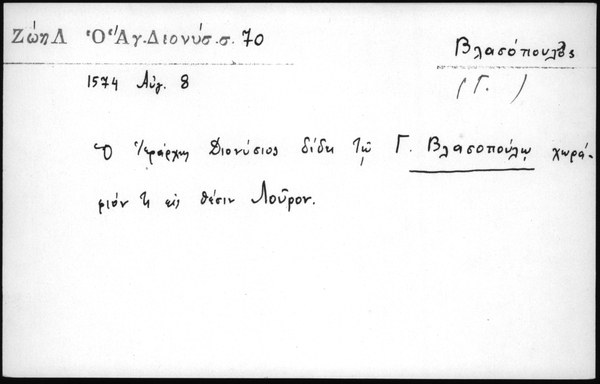 Ζώη Λ Ὁ Ἅγ. Διονύσ. σ. 70
Βλασόπουλος
1574 Αὐγ. 8
(Γ. )
Ὁ Ἱεράρχης Διονύσιος δίδει τῷ Γ. Βλασοπούλῳ χωρά-
φιόν τι εἰς θέσιν Λοῦρον.